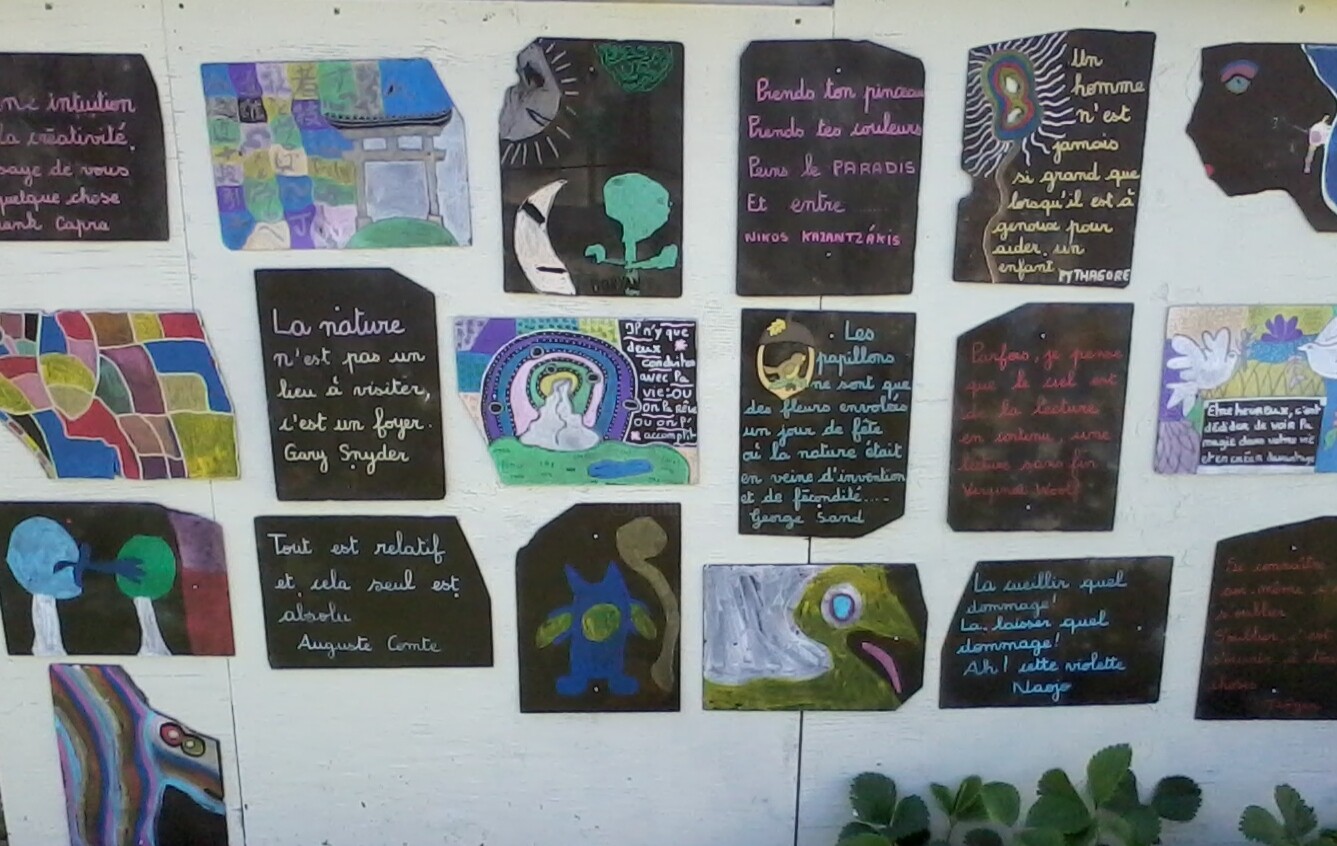 intuition
la créativité,
saye de vous
quelque chose
ank Capra
Prends ton pinceau
Prends tes couleurs
Peins le PARADIS
Et entre
NIKOS KAZANTZÁKIS
Un
homme
n'est
jamais
si grand que
lorsqu'il est à
genoux pour
aider un
enfant PYTHAGORE
La nature
n'est pas un
lieu à visiter,
c'est un foyer.
Gary Snyder
Il n'y a que
deux
conduites
avec la
vie: ou
on la rêve
ou on l'
accomplit
Les
papillons
ne sont que
des fleurs envolées
un jour de fête
où la nature était
en veine d'invention
et de fécondité....
George Sand
Parfois, je pense
que le ciel est
de la lecture
en continu, une
lecture sans fin
Virginia Woolf
Etre heureux, c'est
décider de voir la
magie dans votre vie
et en créer davantage
Tout est relatif
et cela seul est
absolu
Auguste Comte
La cueillir quel
dommage!
La laisser quel
dommage!
Ah! cette violette
Naojo
Se connaître
soi-même
s'oublier
S'oublier c'est
s'ouvrir à
choses